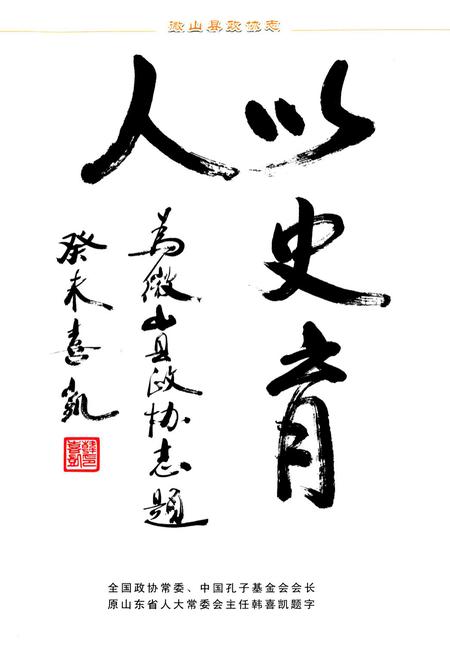 微山县政协志
以史育
人
为微山县政协志题
癸未喜凯
全国政协常委、中国孔子基金会会长
原山东省人大常委会主任韩喜凯题字